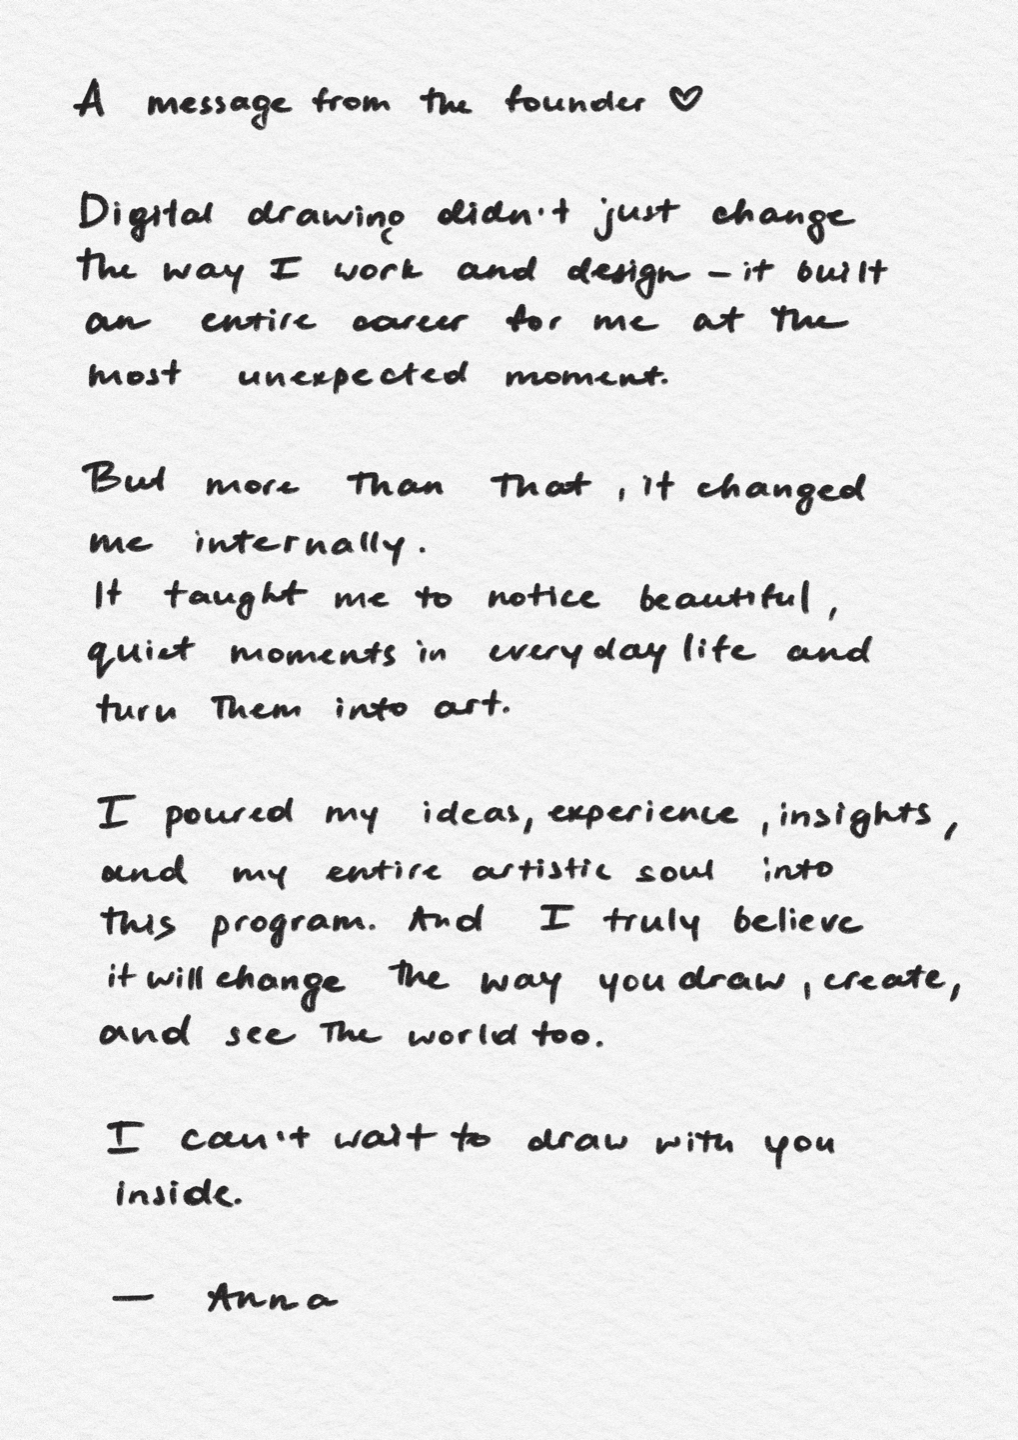 A message from the founder ♡
Digital drawing didn't just change
the way I work and design – it built
an entire career for me at the
most unexpected moment.
But more than that , it changed
me internally.
It taught me to notice beautiful,
quiet moments in everyday life and
turn them into art.
I poured my ideas, experience , insights,
and my entire artistic soul into
this program. And I truly believe
it will change the way you draw, create,
and see the world too.
I can't wait to draw with you
inside.
— Anna